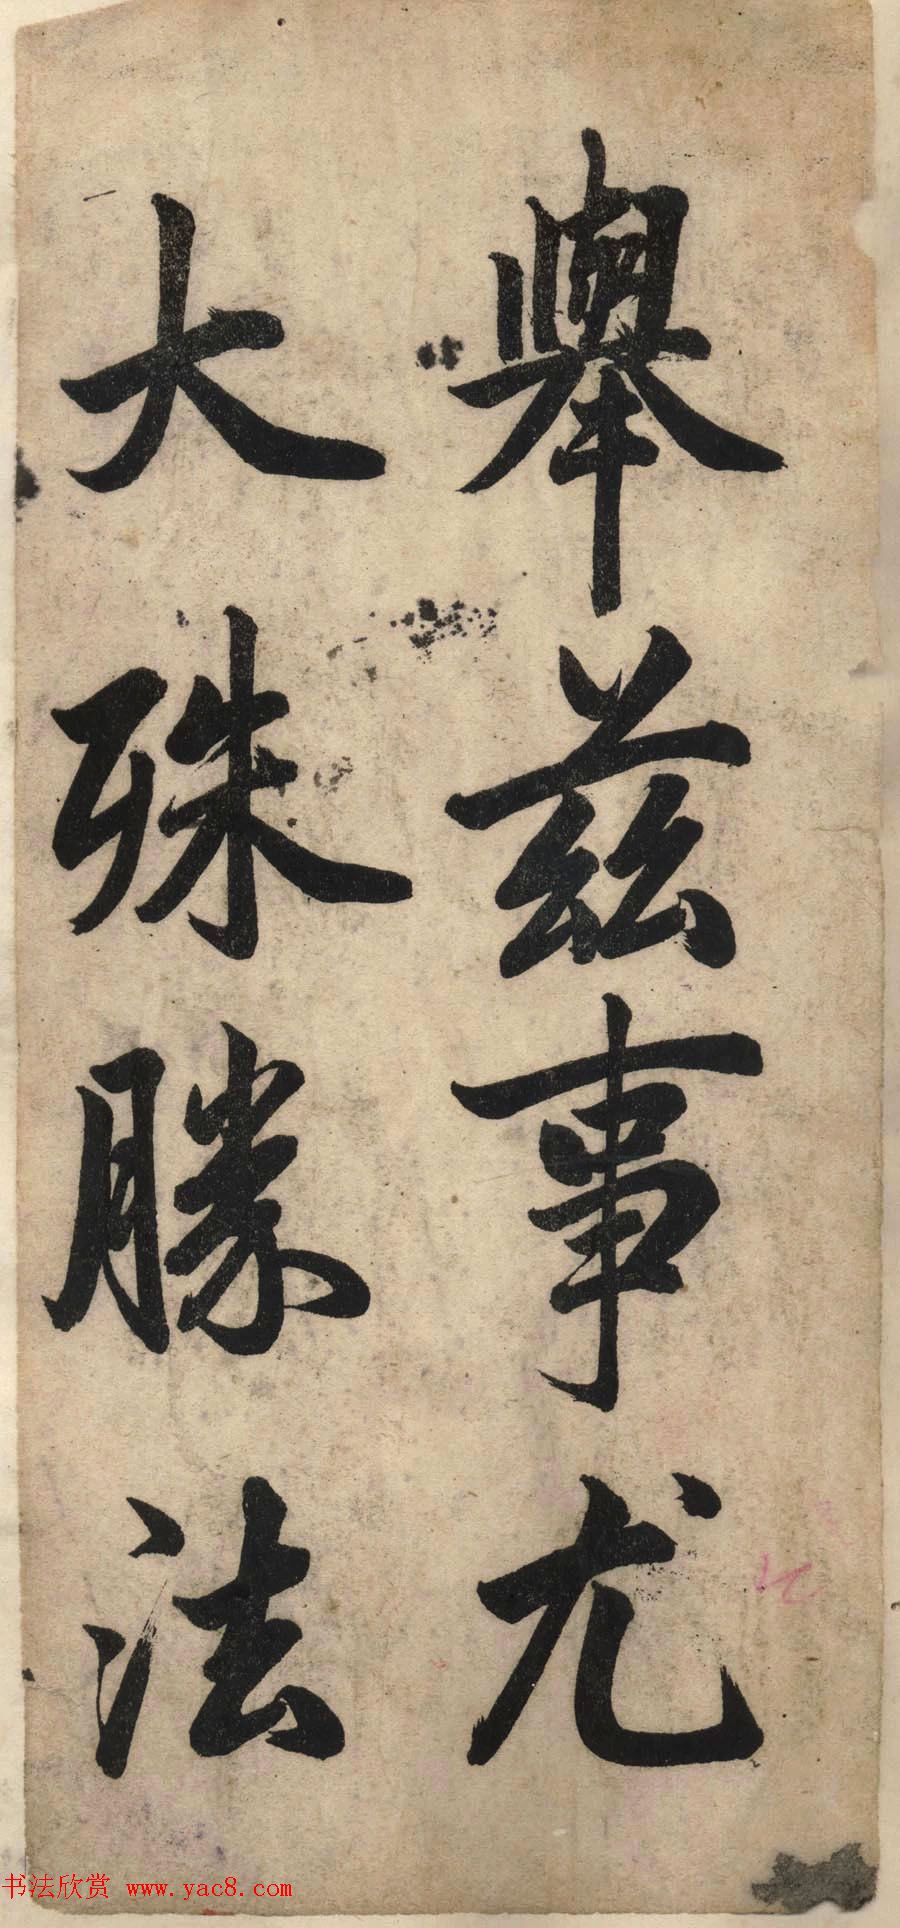 舉茲事尤
大殊勝法
书法欣赏 www.yac8.com